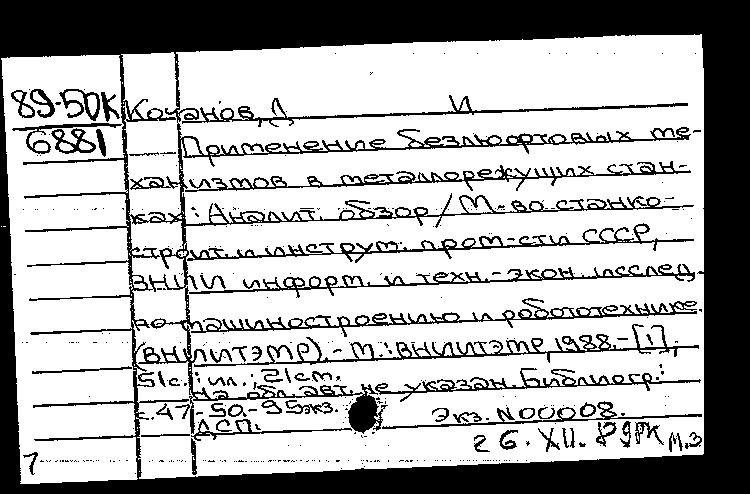 89-50К
6881
Кочанов, Д И
Применение безлюфтовых ме-
ханизмов в металлорежущих стан-
ках : Аналит. обзор / М-во станко-
строит. и инструм. пром-сти СССР,
ВНИИ информ. и техн.-экон. исслед.
по машиностроению и робототехнике
(ВНИИТЭМР). - М. : ВНИИТЭМР, 1988. - [1],
51 с. : ил. ; 21 см.
На обл. авт. не указан. Библиогр.:
с. 47-50. - 95 экз. Экз. N00008.
ДСП.
26. XII. 89 РК М.З
1